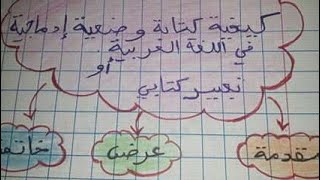 كيفية كتابة وضعية إدماجية
في اللغة العربية
أو
تعبير كتابي
مقدمة
عرض
خاتمة